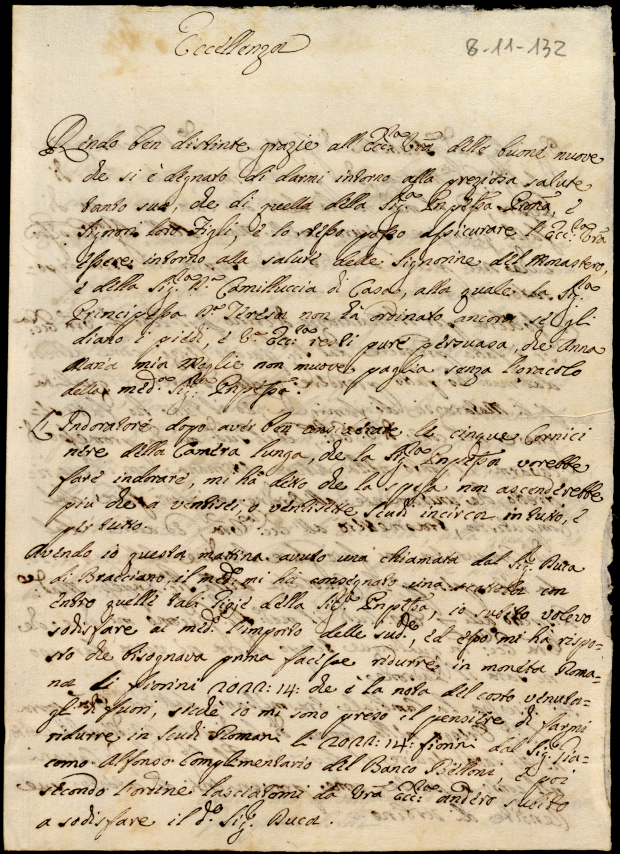 8-11-132
Eccellenza
Rendo ben distinte grazie all'Ecc.za V.ra delle buone nuove
che si è degnato di darmi intorno alla preziosa salute
tanto sua, che di quella della Sig.ra Pnp̃essa
Signori loro Figli, e lo stesso posso assicurare l'Ecc.za V.ra
essere intorno alla salute delle Signorine del Monastero,
e della Sig.ra D.a Camilluccia di Casa, alla quale la Sig.ra
Principessa D.a Teresa non ha ordinato ancora, se gli
diano i piedi, e V.a Ecc.za resti pure persuasa, che Anna
Maria mia Moglie non muove paglia senza l'oracolo
della med.ma Sig.ra Pnp̃essa.
L'Indoratore dopo aver ben considerate le cinque Cornici
nere della Camera lunga, che la Sig.ra Pnp̃essa vorebbe
fare indorare, mi ha detto che la spesa non ascenderebbe
più che a ventisei, o ventisette scudi incirca in tutto, e
per tutto.
Avendo io questa mattina avuto una chiamata dal Sig. Duca
di Bracciano, il med.mo mi ha consegnato una scatola con
entro quelle tali della Sig.ra Pnp̃essa, io subito volevo
sodisfare al med.mo l'importo delle sud.e, ed esso mi ha rispo-
sto che bisognava prima facesse ridurre in moneta Roma-
na li fiorini 2022:14: che è la nota del costo venuta-
gli di fuori, sicchè io mi sono preso il pensiere di farmi
ridurre in scudi Romani li 2022:14: fiorini dal Sig. Gia-
como Alfonso Complimentario del Banco Belloni, e poi
secondo l'ordine lasciatomi da V.ra Ecc.za anderò subito
a sodisfare il d.o Sig. Duca.